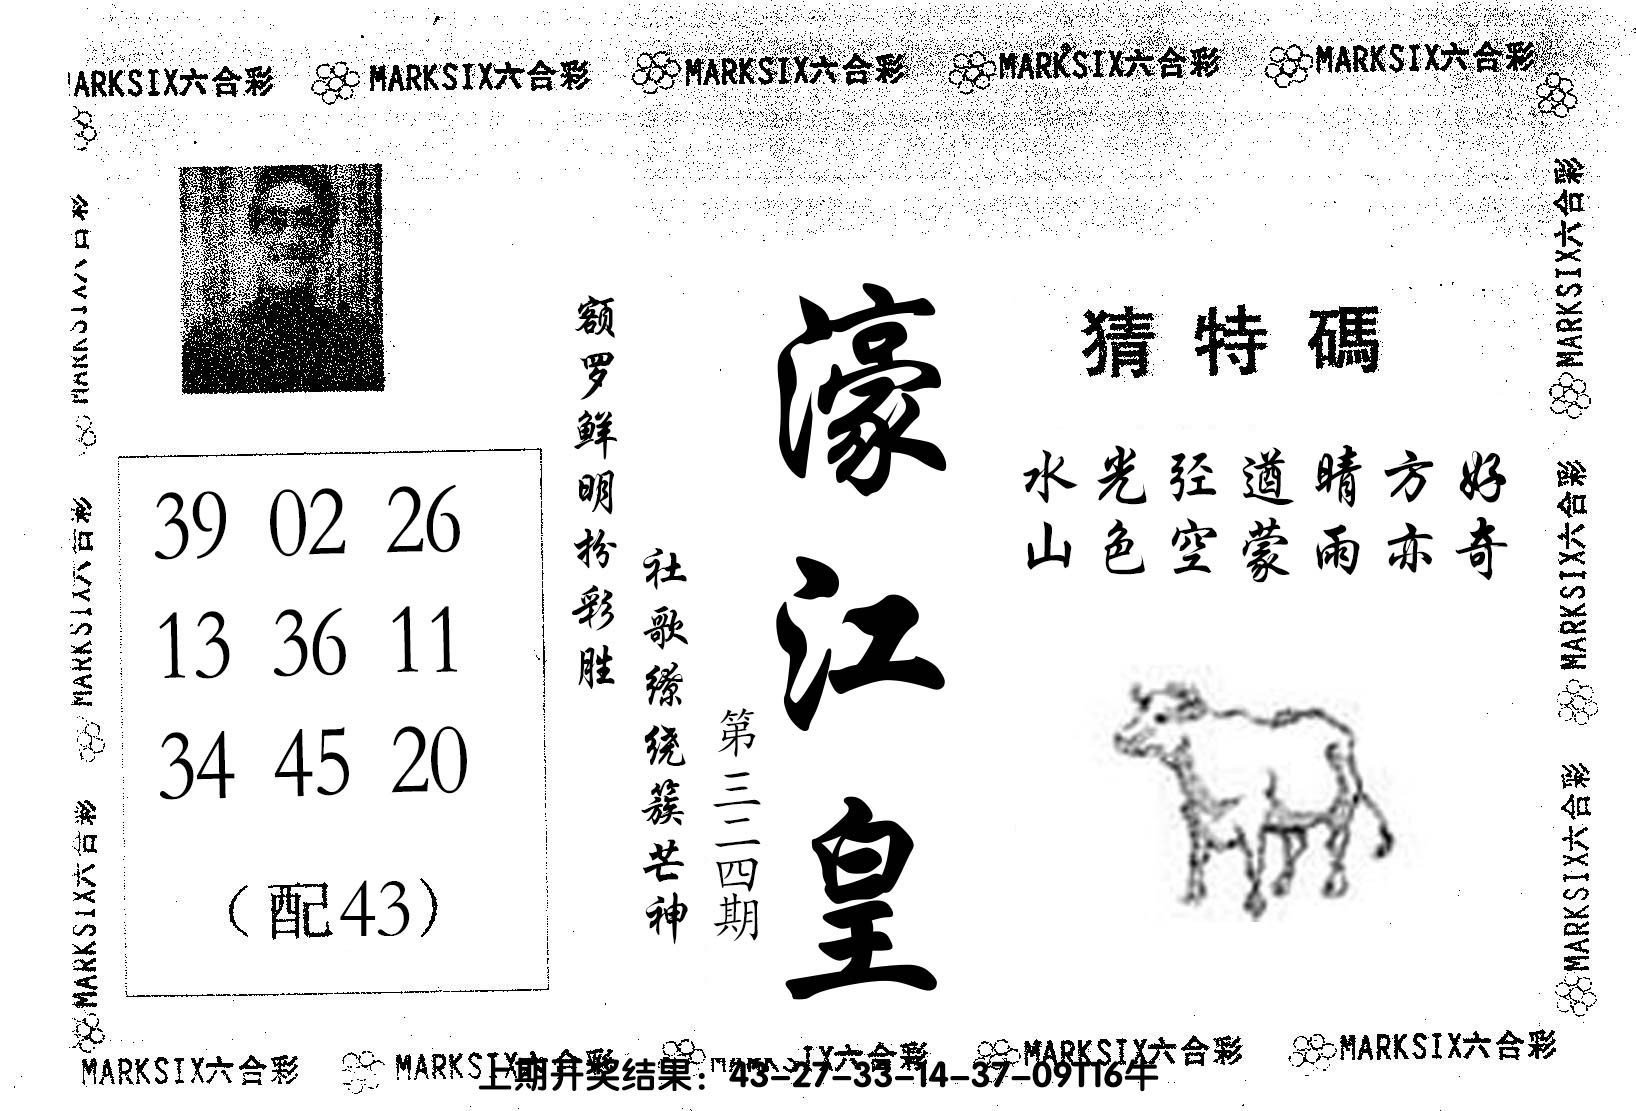 MARKSIX六合彩 MARKSIX六合彩 MARKSIX六合彩 MARKSIX六合彩 MARKSIX六合彩
猜特碼
水光径遒晴方好
山色空蒙雨亦奇
濠江皇
第三二四期
额罗鲜明扮彩胜
社歌缭绕簇芒神
39 02 26
13 36 11
34 45 20
（配43）
MARKSIX六合彩
MARKSIX六合彩
MARKSIX六合彩
MARKSIX六合彩
MARKSIX六合彩
MARKSIX六合彩
MARKSIX六合彩 MARKSIX六合彩 MARKSIX六合彩 MARKSIX六合彩 MARKSIX六合彩
上期开奖结果：43-27-33-14-37-09T16牛